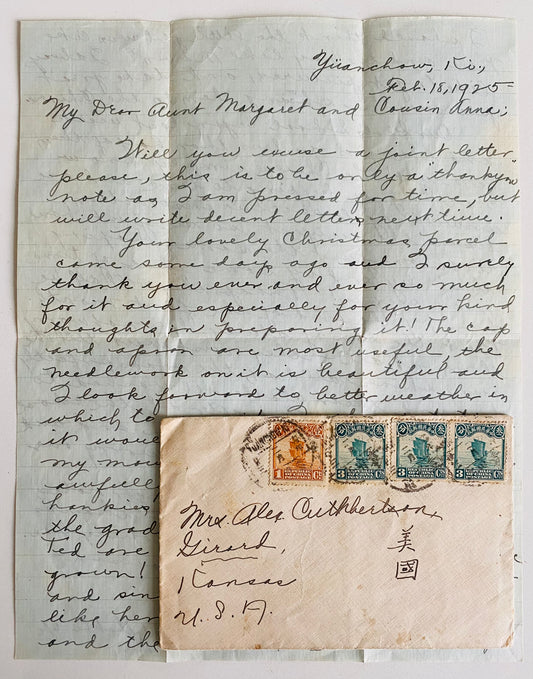 Yüanchow, Ki.,
Feb. 18, 1925
My Dear Aunt Margaret and Cousin Anna;
Will you excuse a joint letter
please, this is to be only a "thankyou"
note as I am pressed for time, but
will write decent letters next time.
Your lovely Christmas parcel
came some days ago and I surely
thank you ever and ever so much
for it and especially for your kind
thoughts in preparing it! The cap
and apron are most useful, the
needlework on it is beautiful and
I look forward to better weather in
which to
it wou
my mo
awfully
hankies
the grad
Ted are
grown!
and sin
like her
and the
1 Ct.
3 Cts
3 Cts
3 Cts
Mrs. Alex Cuthbertson,
Girard,
Kansas
U.S.A.
美
國